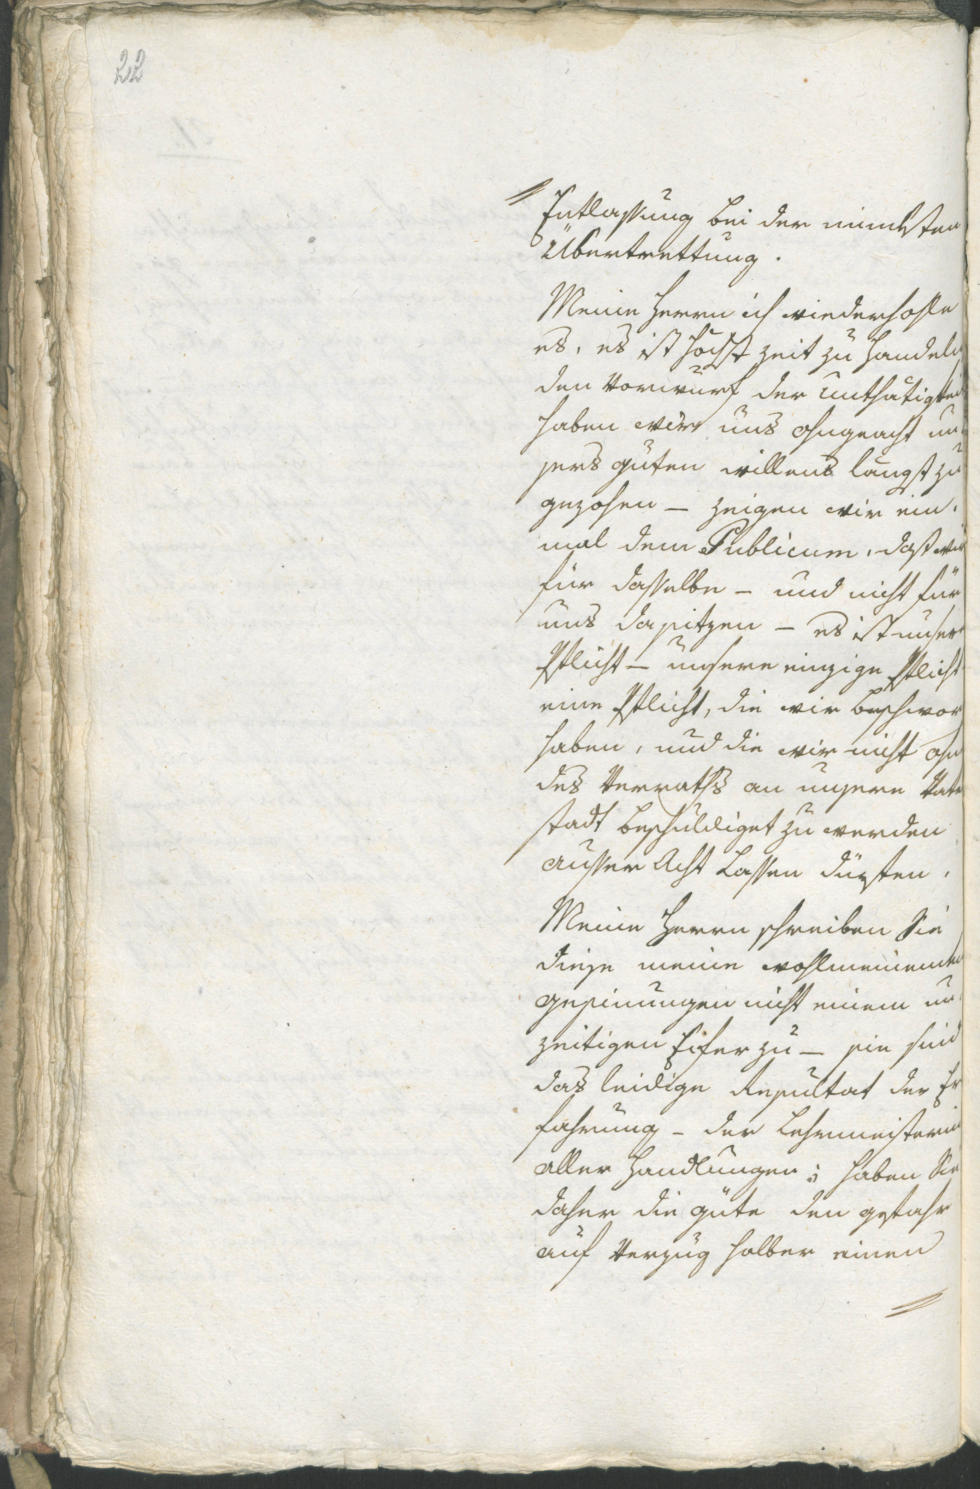 22
Entlassung bei der mindesten
Übertrettung.
Meine Herrn ich wiederhohle
es, es ist höchst zeit zu Handeln
den Vorwurf der Unthätigkeit
haben wir uns ohngeacht un
sers guten willens längst zu
gezohen — zeigen wir ein,
mal dem Publicum, daß wir
für dasselbe — und nicht für
uns dasitzen — es ist unser
Pflicht — unsere einzige Pflicht
eine Pflicht, die wir beschwor
haben, und die wir nicht ohn
des Verraths an unsere Vater
stadt beschuldiget zu werden
ausser Acht Lassen dürften.
Meine Herrn schreiben Sie
diese meine wohlmeinenden
gesinnungen nicht einem un
zeitigen Eifer zu — sie sind
das leidige Resultat der Er
fahrung — der Lehrmeisterin
aller Handlungen; haben Sie
daher die güte den gefahr
auf Verzug halber einen